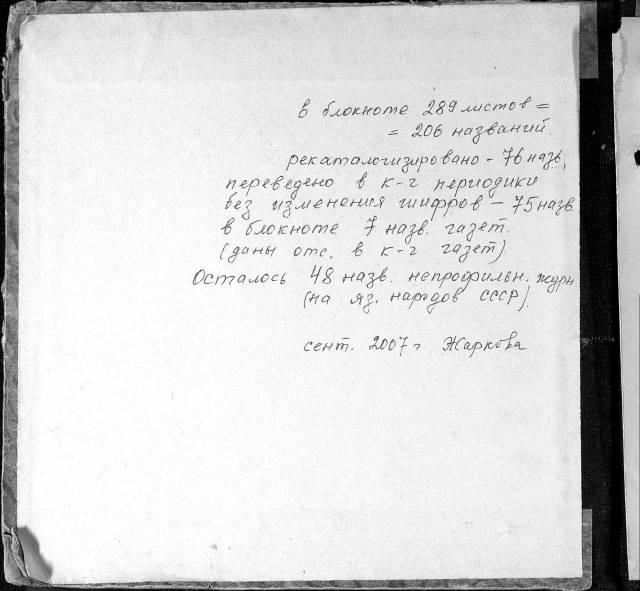 в блокноте 289 листов =
= 206 названий.
рекаталогизировано - 76 назв,
переведено в к-г периодики
без изменения шифров - 75 назв
в блокноте 7 назв. газет.
(даны отс. в к-г газет)
Осталось 48 назв. непрофильн. журн.
(на яз. народов СССР).
сент. 2007 г Жаркова